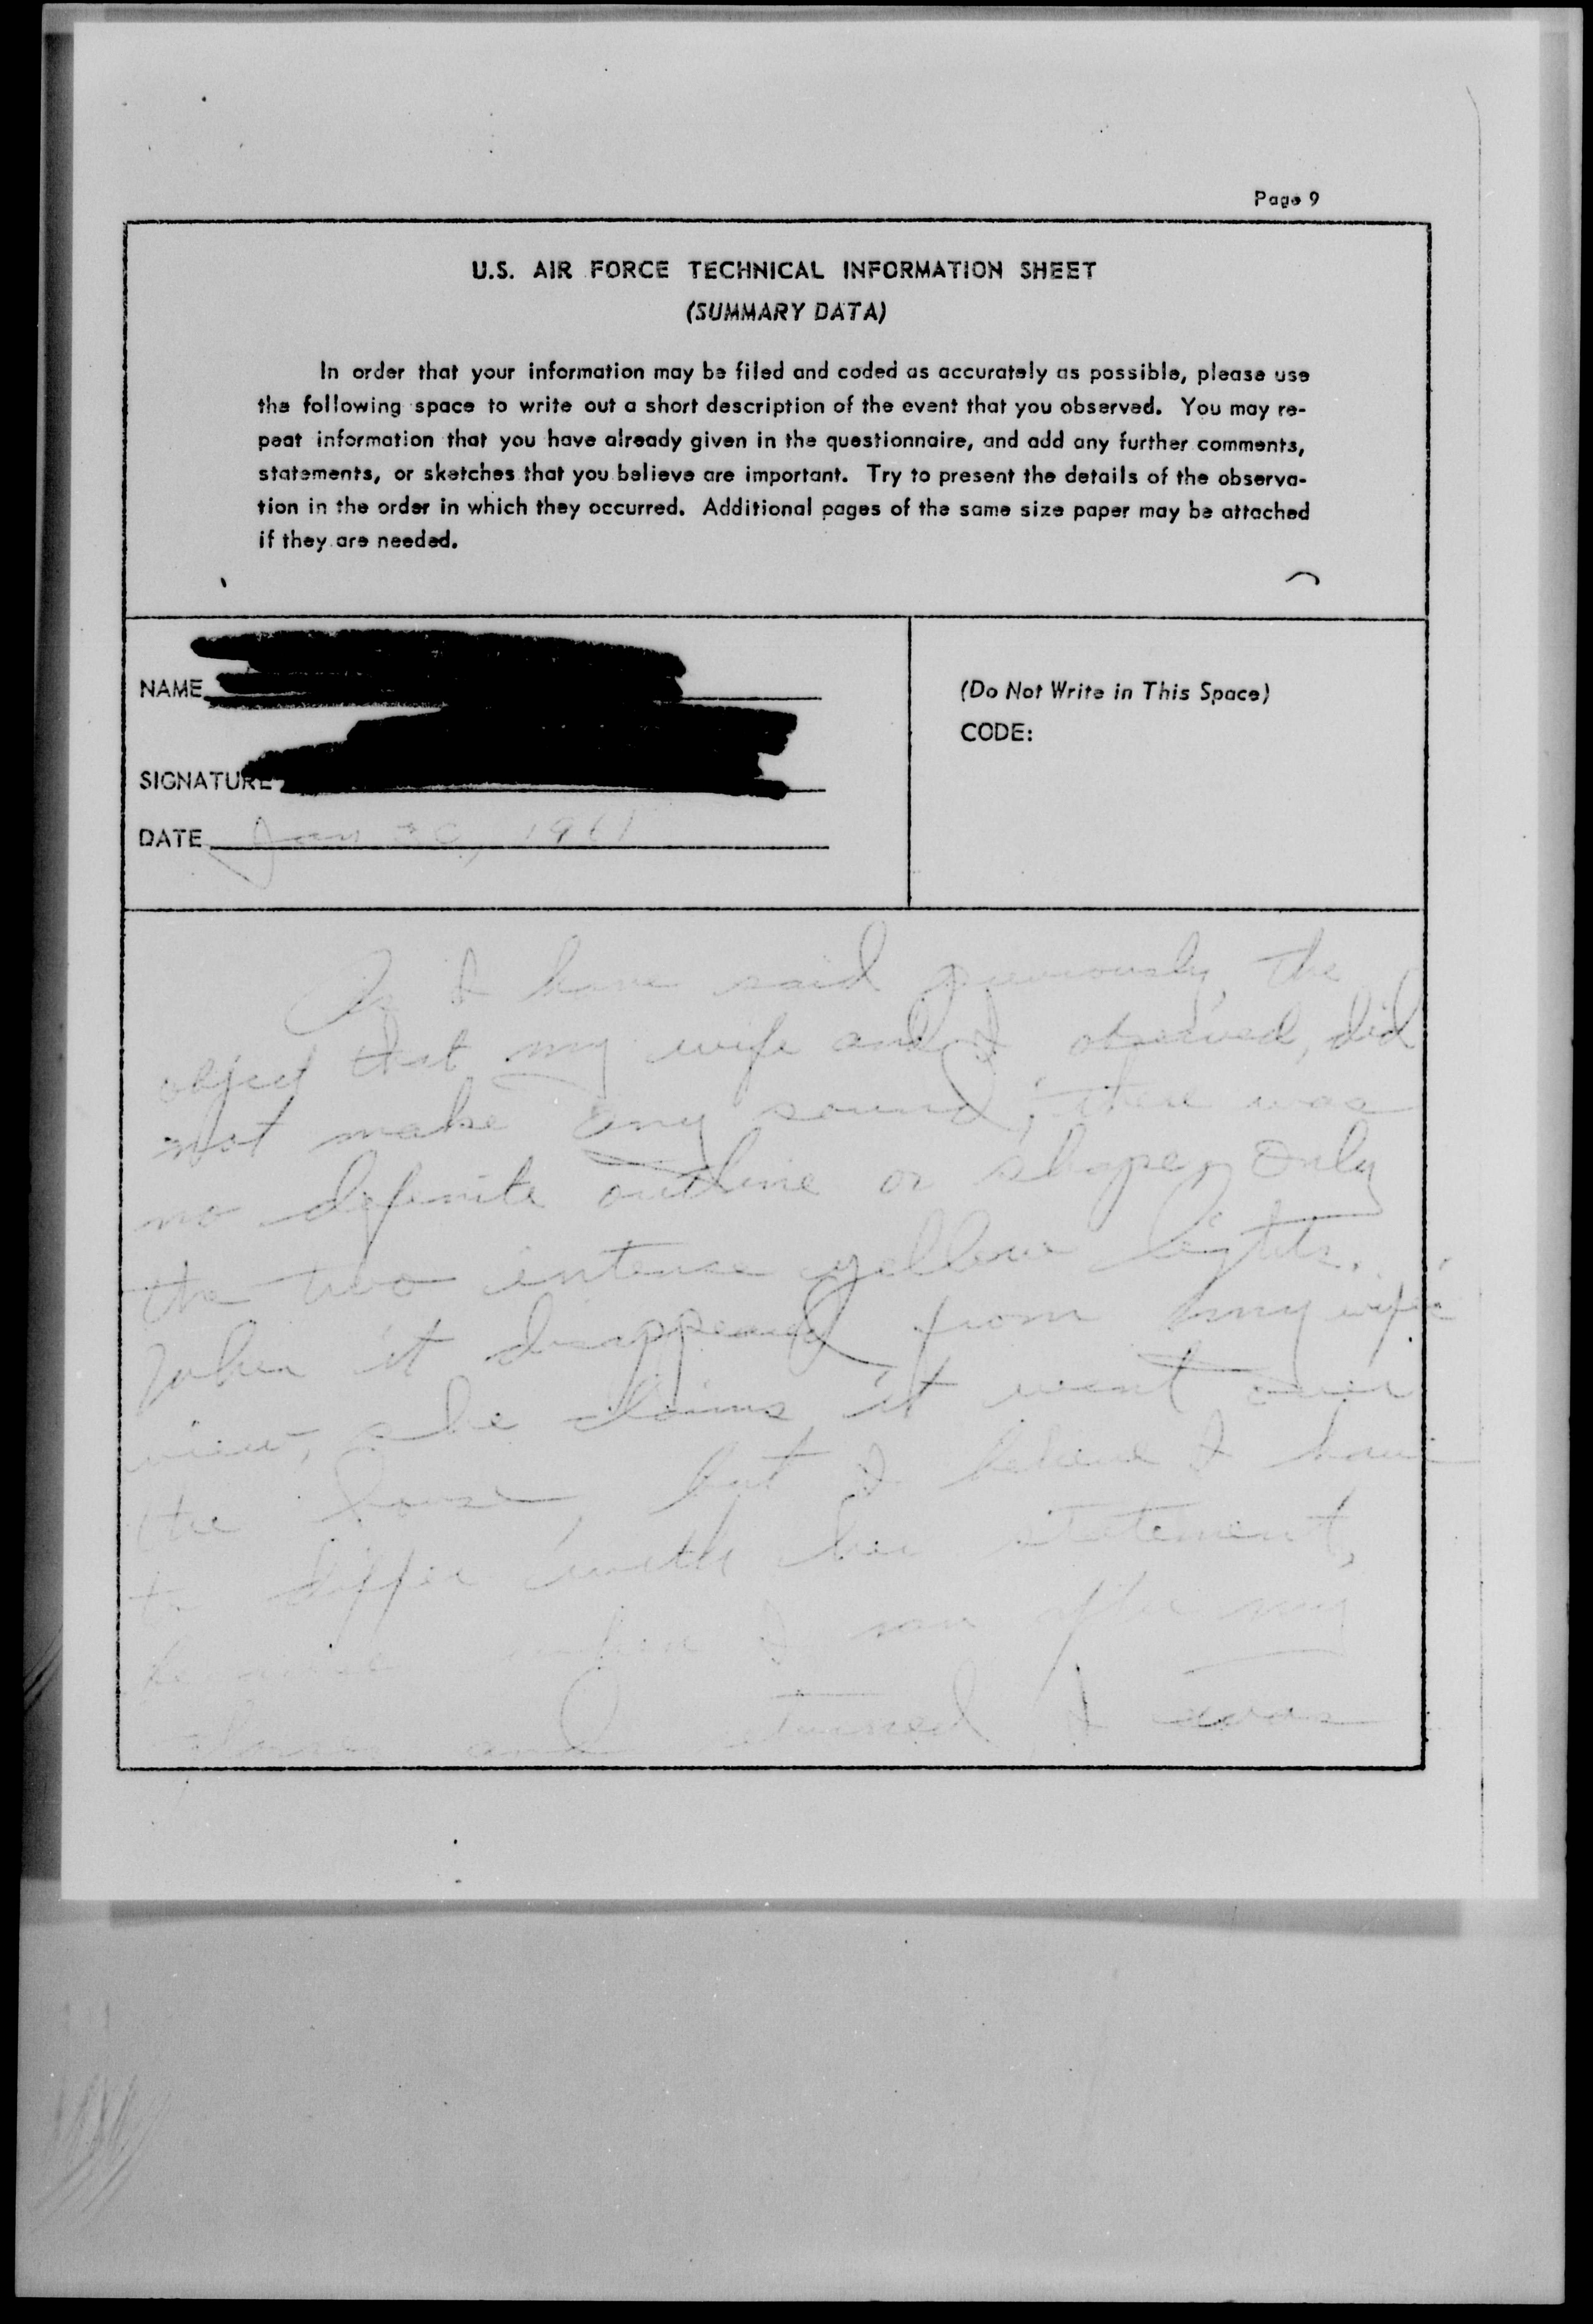 Page 9
U.S. AIR FORCE TECHNICAL INFORMATION SHEET
(SUMMARY DATA)
In order that your information may be filed and coded as accurately as possible, please use
the following space to write out a short description of the event that you observed. You may re-
peat information that you have already given in the questionnaire, and add any further comments,
statements, or sketches that you believe are important. Try to present the details of the observa-
tion in the order in which they occurred. Additional pages of the same size paper may be attached
if they are needed.
NAME
(Do Not Write in This Space)
CODE:
SIGNATURE
DATE Jan 30, 1961
As I have said previously, the
object that my wife and I observed, did
not make any sound, there was
no definite outline or shape, only
the two intense yellow lights.
When it disappeared from my wife's
view, she claims it went over
the house, but I believe I have
to differ with her statement,
because when I ran after my
and turned, I was